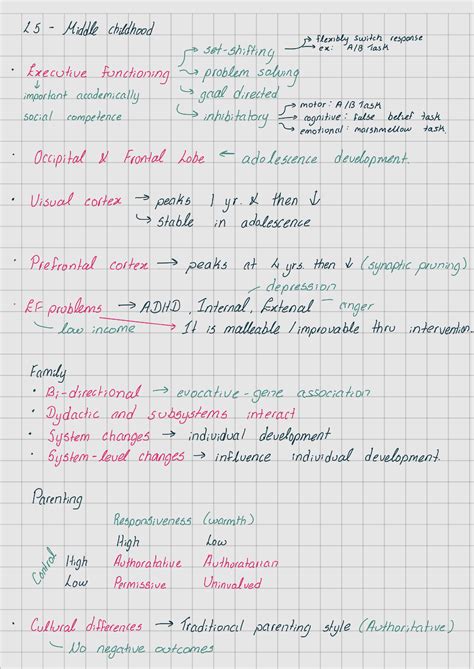 L5 - Middle childhood
→ flexibly switch response
→ ex: A/B Task
→ set-shifting
• Executive functioning → problem solving
↓ → goal directed
important academically
social competence → inhibitatory
→ motor: A/B Task
→ cognitive: false belief task
→ emotional: marshmellow task
• Occipital & Frontal Lobe ← adolescence development.
• Visual cortex → peaks 1 yr. & then ↓
↳ stable in adolescence
• Prefrontal cortex → peaks at 4 yrs. then ↓ (synaptic pruning)
depression
• EF problems → ADHD, Internal, Extenal - anger
low income → It is malleable / improvable thru intervention.
Family
• Bi-directional → evocative-gene association
• Dydactic and subsystems interact
• System changes → individual development
• System-level changes → influence individual development.
Parenting
Responsiveness (warmth)
High Low
Control
High Authoratative Authoratarian
Low Permissive Uninvalved
• Cultural differences → Traditional parenting style (Authoritative)
No negative outcomes